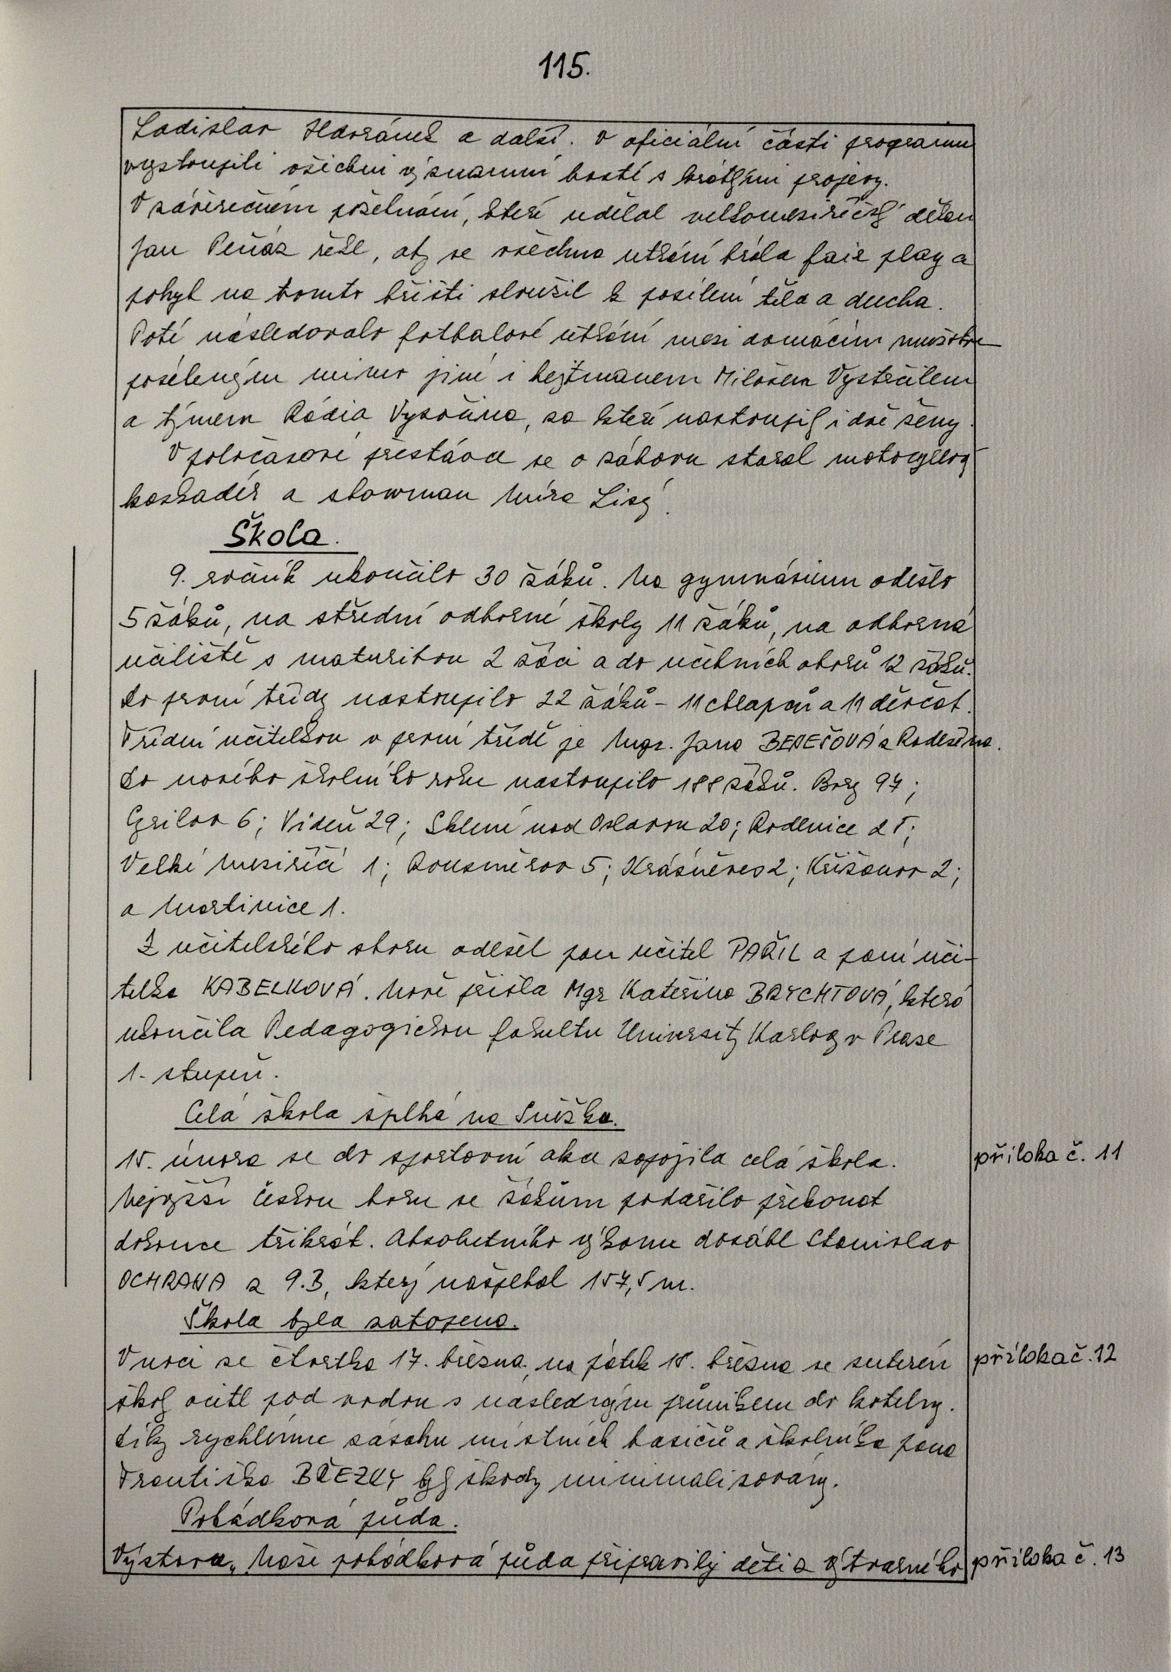 115.
Ladislav Havránek a další. V oficiální části programu
vystoupili všichni významní hosté s krátkými projevy.
V závěrečném požehnání, které udělal velkomeziříčský děkan
Jan Peňáz řekl, aby se všechna utkání hrála fair play a
pohyb na tomto hřišti sloužil k posílení těla a ducha.
Poté následovalo fotbalové utkání mezi domácím mužstvem
posíleným mimo jiné i hejtmanem Milošem Vystrčilem
a týmem Rádia Vysočina, za které nastoupily i dvě ženy.
V poločasové přestávce se o zábavu staral motocyklový
kaskadér a showman Míra Lisý.
Škola.
9. ročník ukončilo 30 žáků. Na gymnásium odešlo
5 žáků, na střední odborné školy 11 žáků, na odborná
učiliště s maturitou 2 žáci a do učebních oborů 12 žáků.
Do první třídy nastoupilo 22 žáků - 11 chlapců a 11 děvčat.
Třídní učitelkou v první třídě je Mgr. Jana BEDEČOVÁ z Radešína.
Do nového školního roku nastoupilo 188 žáků. Bory 97;
Cyrilov 6; Vídeň 29; Sklené nad Oslavou 20; Rodlenice 25;
Velké Meziříčí 1; Rousměrov 5; Krásněves 2; Křižanov 2;
a Martinice 1.
Z učitelského sboru odešel pan učitel PAŘIL a paní uči-
telka KABELKOVÁ. Nově přišla Mgr Kateřina BRYCHTOVÁ, která
ukončila Pedagogickou fakultu University Karlovy v Praze
1. stupeň.
Celá škola šplhá na Sněžku.
15. února se do sportovní akce zapojila celá škola.
Nejvyšší českou horu se žákům podařilo překonat
dokonce třikrát. Absolutního výkonu dosáhl Stanislav
OCHRANA z 9.B, který našplhal 157,5 m.
Škola byla zatopena.
V noci ze čtvrtka 17. března na pátek 18. března se suterén
školy ocitl pod vodou s následným průnikem do kotelny.
Díky rychlému zásahu místních hasičů a školníka pana
Františka BŘEZKY byly škody minimalizovány.
Pohádková půda.
Výstavu „Naše pohádková půda připravily děti z výtvarného
příloha č. 11
příloha č. 12
příloha č. 13